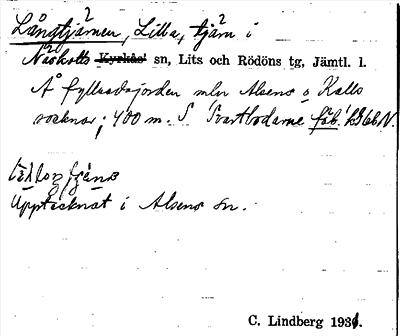 Långtjärnen, Lilla, tjärn i
Näskotts Kyrkås' sn, Lits och Rödöns tg, Jämtl. l.
Å fyllnadsjorden mln Alsens o Kalls
socknar; 400 m. S 'Svartbodarne fäb.'
Upptecknat i Alsens sn.
C. Lindberg 1931.